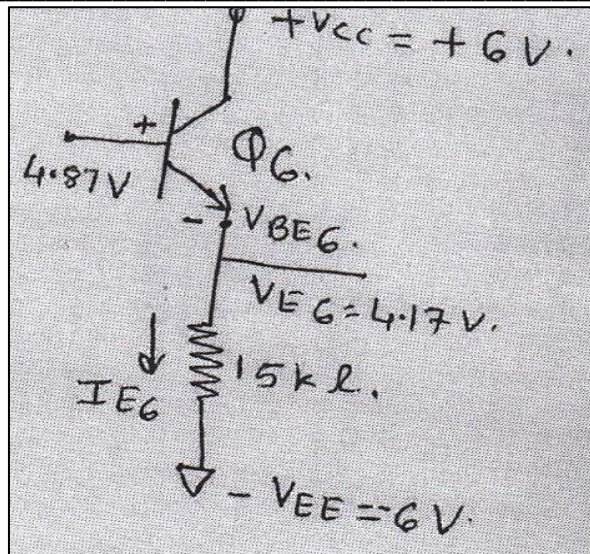 +VCC = +6V.
+
Q6.
4.87V
- VBE6.
VE6=4.17V.
IE6
15kΩ.
- VEE =-6V.